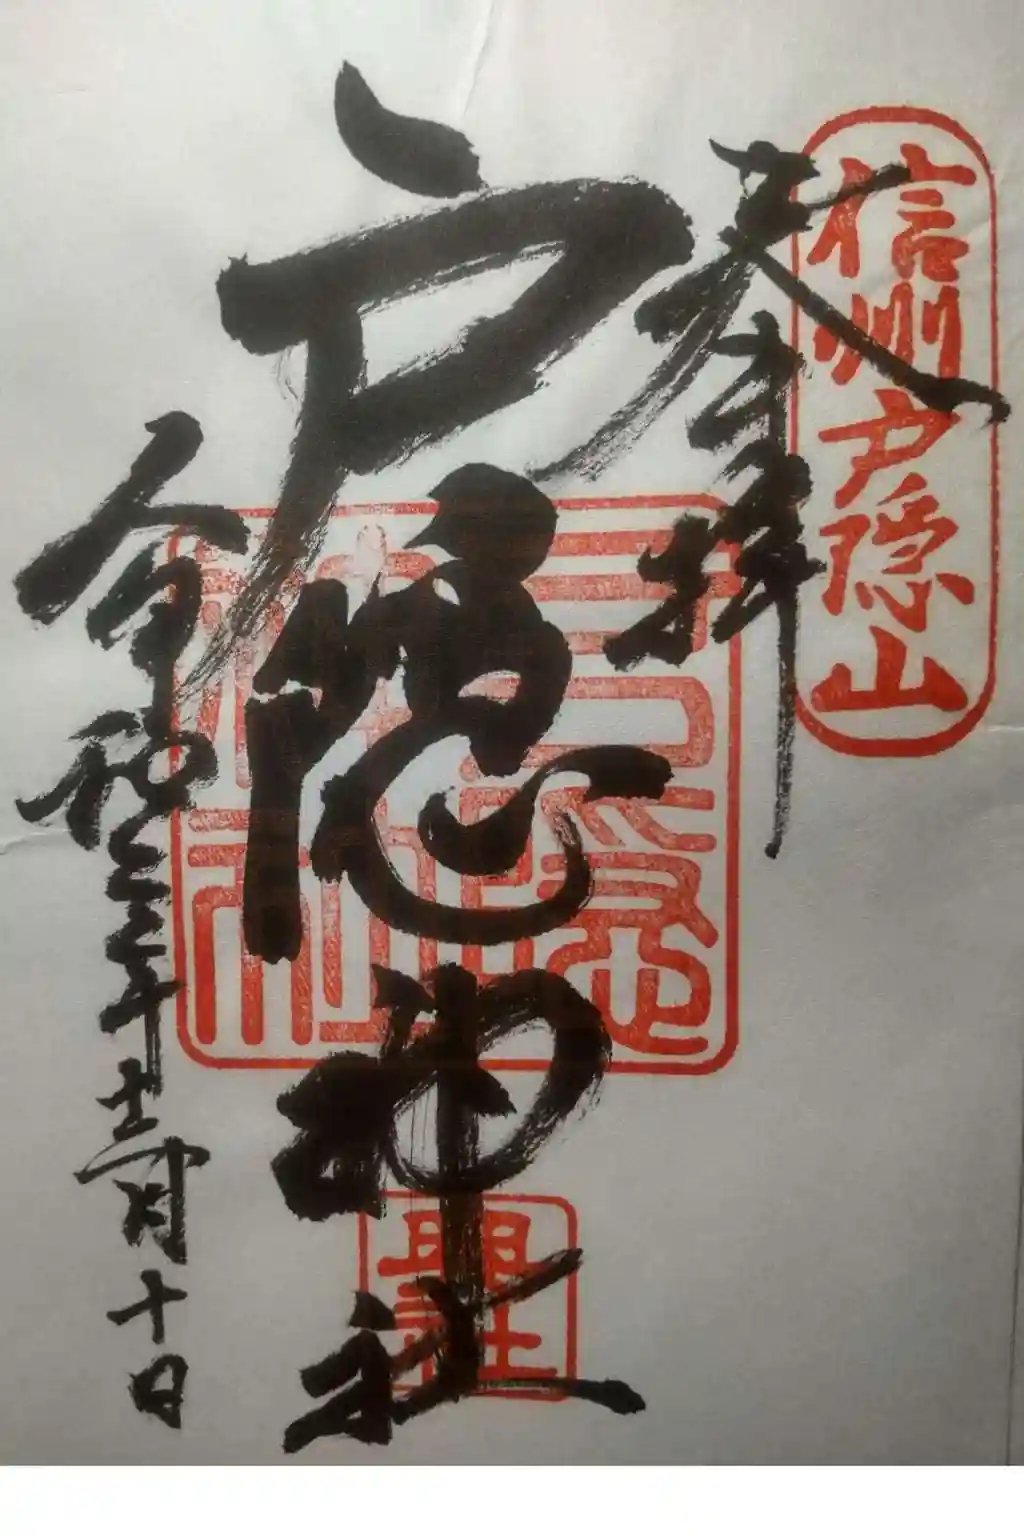 信州戸隠山
奉拝
戸隠神社
戸隠神社
令和三年十二月十日